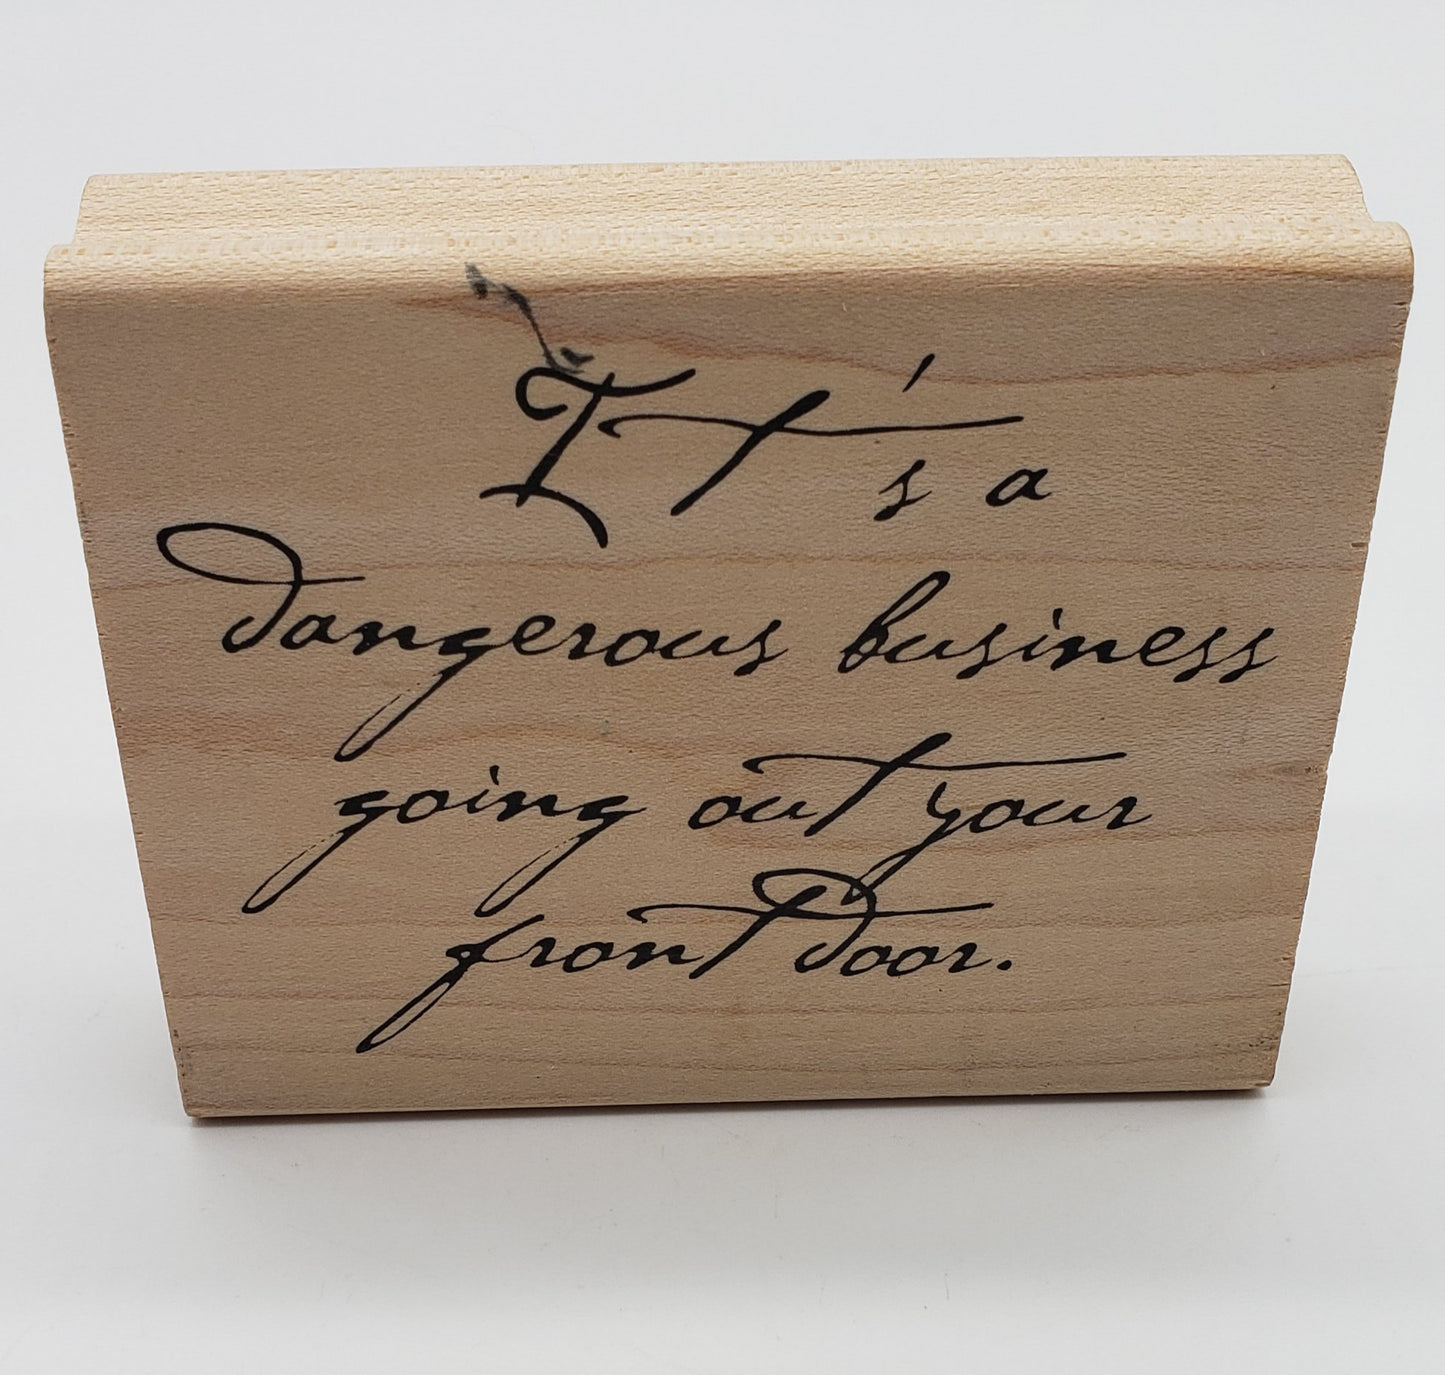 It's a
dangerous business
going out your
front door.